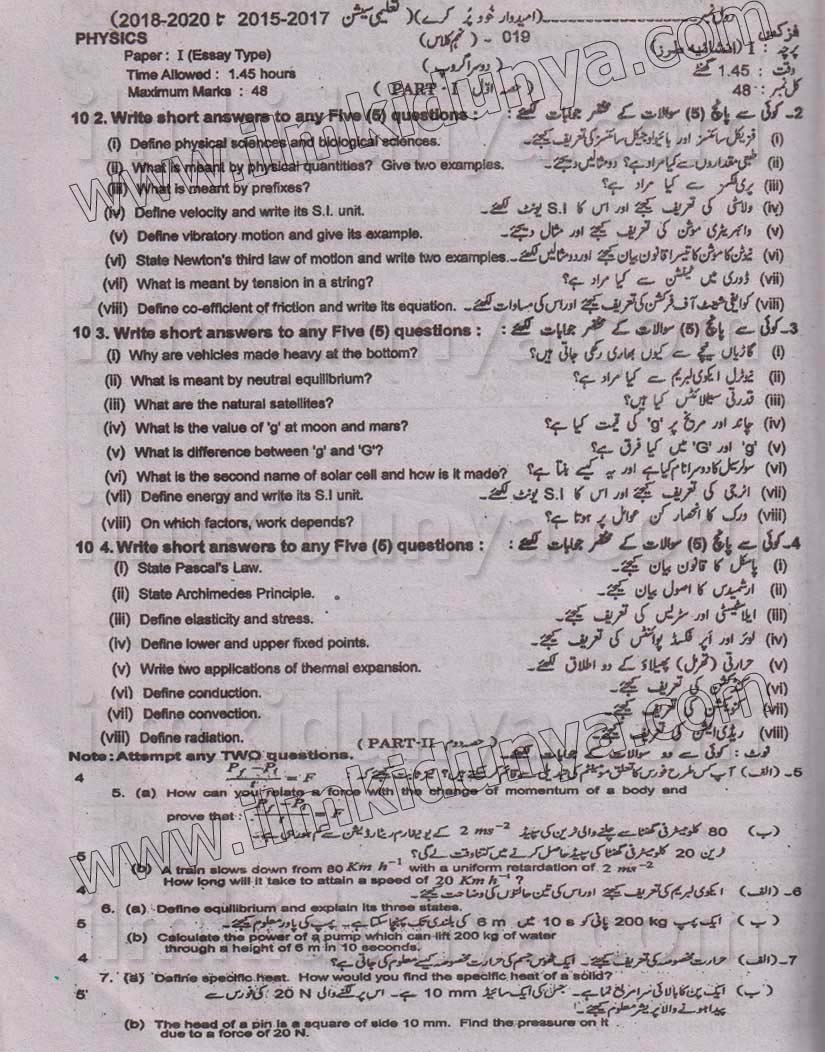 رول نمبر (امیدوار خود پُر کرے) (تعلیمی سیشن 2015-2017 تا 2018-2020)
PHYSICS 019 - (نہم کلاس) فزکس
Paper : I (Essay Type) (دوسرا گروپ) پرچہ : I (انشائیہ طرز)
Time Allowed : 1.45 hours وقت : 1.45 گھنٹے
Maximum Marks : 48 (PART - I حصہ اوّل) کل نمبر : 48
10 2. Write short answers to any Five (5) questions : 2۔ کوئی سے پانچ (5) سوالات کے مختصر جوابات لکھئے :
(i) Define physical sciences and biological sciences. (i) فزیکل سائنسز اور بائیولوجیکل سائنسز کی تعریف کیجئے۔
(ii) What is meant by physical quantities? Give two examples. (ii) طبیعی مقداروں سے کیا مراد ہے؟ دو مثالیں دیجئے۔
(iii) What is meant by prefixes? (iii) پری فکسز سے کیا مراد ہے؟
(iv) Define velocity and write its S.I. unit. (iv) ولاسٹی کی تعریف کیجئے اور اس کا S.I یونٹ لکھئے۔
(v) Define vibratory motion and give its example. (v) وائبریٹری موشن کی تعریف کیجئے اور مثال دیجئے۔
(vi) State Newton's third law of motion and write two examples. (vi) نیوٹن کا موشن کا تیسرا قانون بیان کیجئے اور دو مثالیں لکھئے۔
(vii) What is meant by tension in a string? (vii) ڈوری میں ٹینشن سے کیا مراد ہے؟
(viii) Define co-efficient of friction and write its equation. (viii) کوایفی شینٹ آف فرکشن کی تعریف کیجئے اور اس کی مساوات لکھئے۔
10 3. Write short answers to any Five (5) questions : 3۔ کوئی سے پانچ (5) سوالات کے مختصر جوابات لکھئے :
(i) Why are vehicles made heavy at the bottom? (i) گاڑیاں نیچے سے کیوں بھاری رکھی جاتی ہیں؟
(ii) What is meant by neutral equilibrium? (ii) نیوٹرل ایکوی لبریم سے کیا مراد ہے؟
(iii) What are the natural satellites? (iii) قدرتی سیٹلائٹس کیا ہیں؟
(iv) What is the value of 'g' at moon and mars? (iv) چاند اور مریخ پر 'g' کی قیمت کیا ہے؟
(v) What is difference between 'g' and 'G'? (v) 'g' اور 'G' میں کیا فرق ہے؟
(vi) What is the second name of solar cell and how is it made? (vi) سولر سیل کا دوسرا نام کیا ہے اور یہ کیسے بنتا ہے؟
(vii) Define energy and write its S.I unit. (vii) انرجی کی تعریف کیجئے اور اس کا S.I یونٹ لکھئے۔
(viii) On which factors, work depends? (viii) ورک کا انحصار کن عوامل پر ہوتا ہے؟
10 4. Write short answers to any Five (5) questions : 4۔ کوئی سے پانچ (5) سوالات کے مختصر جوابات لکھئے :
(i) State Pascal's Law. (i) پاسکل کا قانون بیان کیجئے۔
(ii) State Archimedes Principle. (ii) ارشمیدس کا اصول بیان کیجئے۔
(iii) Define elasticity and stress. (iii) ایلاسٹیسٹی اور سٹریس کی تعریف کیجئے۔
(iv) Define lower and upper fixed points. (iv) لوئر اور اَپر فکسڈ پوائنٹس کی تعریف کیجئے۔
(v) Write two applications of thermal expansion. (v) حرارتی (تھرمل) پھیلاؤ کے دو اطلاق لکھئے۔
(vi) Define conduction. (vi) کنڈکشن کی تعریف کیجئے۔
(vii) Define convection. (vii) کنویکشن کی تعریف کیجئے۔
(viii) Define radiation. (viii) ریڈی ایشن کی تعریف کیجئے۔
(PART-II حصہ دوم)
Note : Attempt any TWO questions. نوٹ : کوئی سے دو سوالات کے جوابات لکھئے۔
4 5۔ (الف) آپ کس طرح فورس کا تعلق مومینٹم کی تبدیلی سے قائم کر سکتے ہیں؟ نیز ثابت کیجئے کہ (Pf - Pi)/t = F
5. (a) How can you relate a force with the change of momentum of a body and
prove that : (Pf - Pi)/t = F
(ب) 80 کلومیٹر فی گھنٹا سے چلنے والی ٹرین کی سپیڈ 2 ms⁻² کے یونیفارم ریٹارڈیشن سے کم ہو رہی ہے۔
5 ٹرین 20 کلومیٹر فی گھنٹا کی سپیڈ حاصل کرنے میں کتنا وقت لے گی؟
(b) A train slows down from 80 Km h⁻¹ with a uniform retardation of 2 ms⁻²
How long will it take to attain a speed of 20 Km h⁻¹ ?
4 6۔ (الف) ایکوی لبریم کی تعریف کیجئے اور اس کی تین حالتوں کی وضاحت کیجئے۔
6. (a) Define equilibrium and explain its three states.
5 (ب) ایک پمپ 200 kg پانی کو 10 s میں 6 m کی بلندی تک پہنچا سکتا ہے۔ پمپ کی پاور معلوم کیجئے۔
(b) Calculate the power of a pump which can lift 200 kg of water
through a height of 6 m in 10 seconds.
4 7۔ (الف) حرارت مخصوصہ کی تعریف کیجئے۔ ایک ٹھوس جسم کی حرارت مخصوصہ کیسے معلوم کی جاتی ہے؟
7. (a) Define specific heat. How would you find the specific heat of a solid?
5 (ب) ایک پن کا بالائی سرا مربع نما ہے۔ جس کی ایک سائیڈ 10 mm ہے۔ اس پر لگنے والی 20 N کی فورس سے
پیدا ہونے والا پریشر معلوم کیجئے۔
(b) The head of a pin is a square of side 10 mm. Find the pressure on it
due to a force of 20 N.
www.ilmkidunya.com
www.ilmkidunya.com